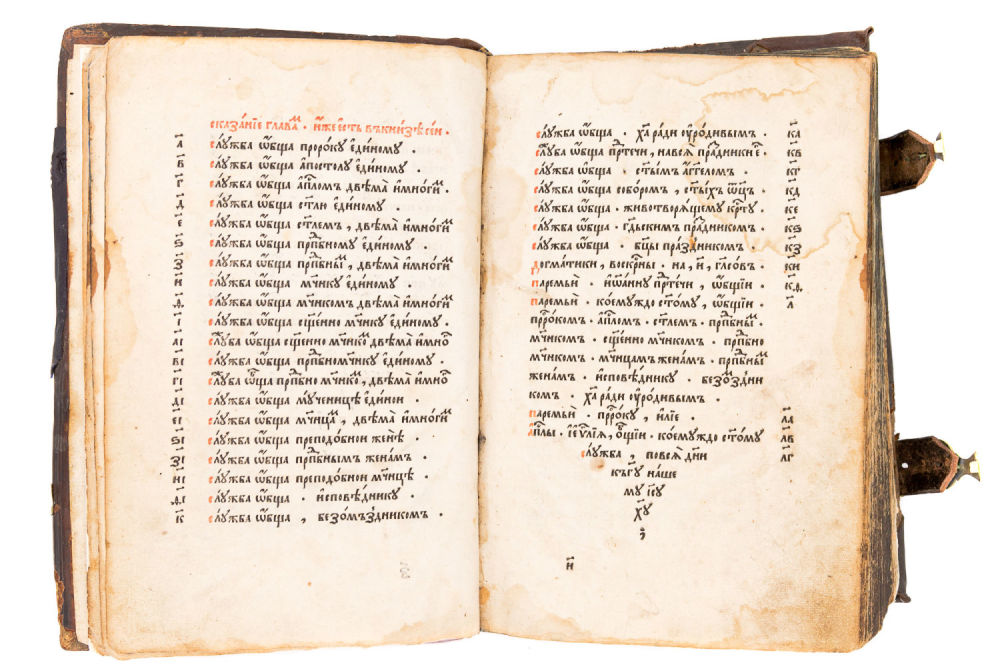 сказа́нїе глава́м · и҆́же є҆сть въ кни́зѣ се́й ·
а҃ слꙋжба ѡ҆́бща проро́кꙋ є҆ди́номꙋ ·
в҃ слꙋжба ѡ҆́бща а҆по́столꙋ є҆ди́номꙋ ·
г҃ слꙋжба ѡ҆́бща а҆п҃лом двѣ́ма и҆ мно́гим ·
д҃ слꙋжба ѡ҆́бща ст҃лю є҆ди́номꙋ ·
є҃ слꙋжба ѡ҆́бща ст҃лемъ , двѣ́ма и҆ мно́гим
ѕ҃ слꙋжба ѡ҆́бща прпⷣбномꙋ є҆ди́номꙋ ·
з҃ слꙋжба ѡ҆́бща прпⷣбным , двѣ́ма и҆ мно́гим
и҃ слꙋжба ѡ҆́бща мч҃никꙋ є҆ди́номꙋ ·
ѳ҃ слꙋжба ѡ҆́бща мч҃никомъ двѣ́ма и҆ мно́гим
і҃ слꙋжба ѡ҆́бща сщ҃енно мч҃никꙋ є҆ди́номꙋ ·
аі҃ слꙋба ѡ҆́бща сщ҃енно мч҃ником двѣ́ма и҆ мно́г
ві҃ слꙋжба ѡ҆́бща прпⷣбномч҃никꙋ є҆ди́номꙋ ·
гі҃ слꙋба ѡ҆́бща прпⷣбно мч҃ником , двѣ́ма и҆ мно́г
ді҃ слꙋжба ѡ҆́бща мꙋченицѣ є҆ди́нои ·
єі҃ слꙋжба ѡ҆́бща мч҃ницам , двѣ́ма и҆ мно́гим
ѕі҃ слꙋжба ѡ҆́бща преподобнои женѣ̀ ·
зі҃ слꙋжба ѡ҆́бща прпⷣбнымъ жена́мъ ·
иі҃ слꙋжба ѡ҆́бща преподобнои мч҃ницѣ
ѳі҃ слꙋжба ѡ҆́бща · и҆сповѣ́дникꙋ ·
к҃ слꙋжба ѡ҆́бща , безо́мъздникомъ ·
слꙋжба ѡ҆́бща · хⷭ҇а ра́ди ю҆ро́дивымъ · ка҃
слꙋба ѡ҆́бща прⷣте́чи , на всѧ̀ пра́здники є҆го̀ · кв҃
слꙋжба ѡ҆́бща · ст҃ымъ а҆́гг҃ломъ · кг҃
слꙋжба ѡ҆́бща собо́ромъ , ст҃ы́хъ ѻ҆ц҃ъ · кд҃
слꙋжба ѡ҆́бща · животворѧ́щемꙋ крⷭ҇тꙋ · ке҃
слꙋжба ѡ҆́бща · гдⷭ҇ьскимъ пра́здникомъ · кѕ҃
слꙋжба ѡ҆́бща · бц҃ы пра́здникомъ · кз҃
догма́тики , воскрⷭ҇ны · на , и҃ , гла́совъ · ки҃
паремьѝ · і҆ѡа́ннꙋ прⷣте́чи , ѻ҆́бщїи · кѳ҃
паремьѝ · коемꙋждо ст҃омꙋ , ѻ҆́бщїи · л҃
прⷪ҇ро́комъ · а҆п҃ломъ · ст҃лемъ · прпⷣбным ·
мч҃никомъ · сщ҃енно мч҃никомъ · прпⷣбно
мч҃никомъ · мч҃ницамъ жена́мъ · прпⷣбным
жена́мъ · и҆сповѣ́дникꙋ · безмездни
комъ · хⷭ҇а ра́ди ю҆ро́дивымъ ·
паремьѝ · прⷪ҇ро́кꙋ , и҆лїѐ · ла҃
а҆п҃лы · і҆ є҆ѵⷢ҇лїѧ , ѻ҆́бщїи · коемꙋждо ст҃омꙋ лв҃
слꙋжба , по всѧ̀ дни̑ лг҃
къ гд҇ꙋ на́ше
мꙋ і҆сꙋ
хꙋ
;
и҃